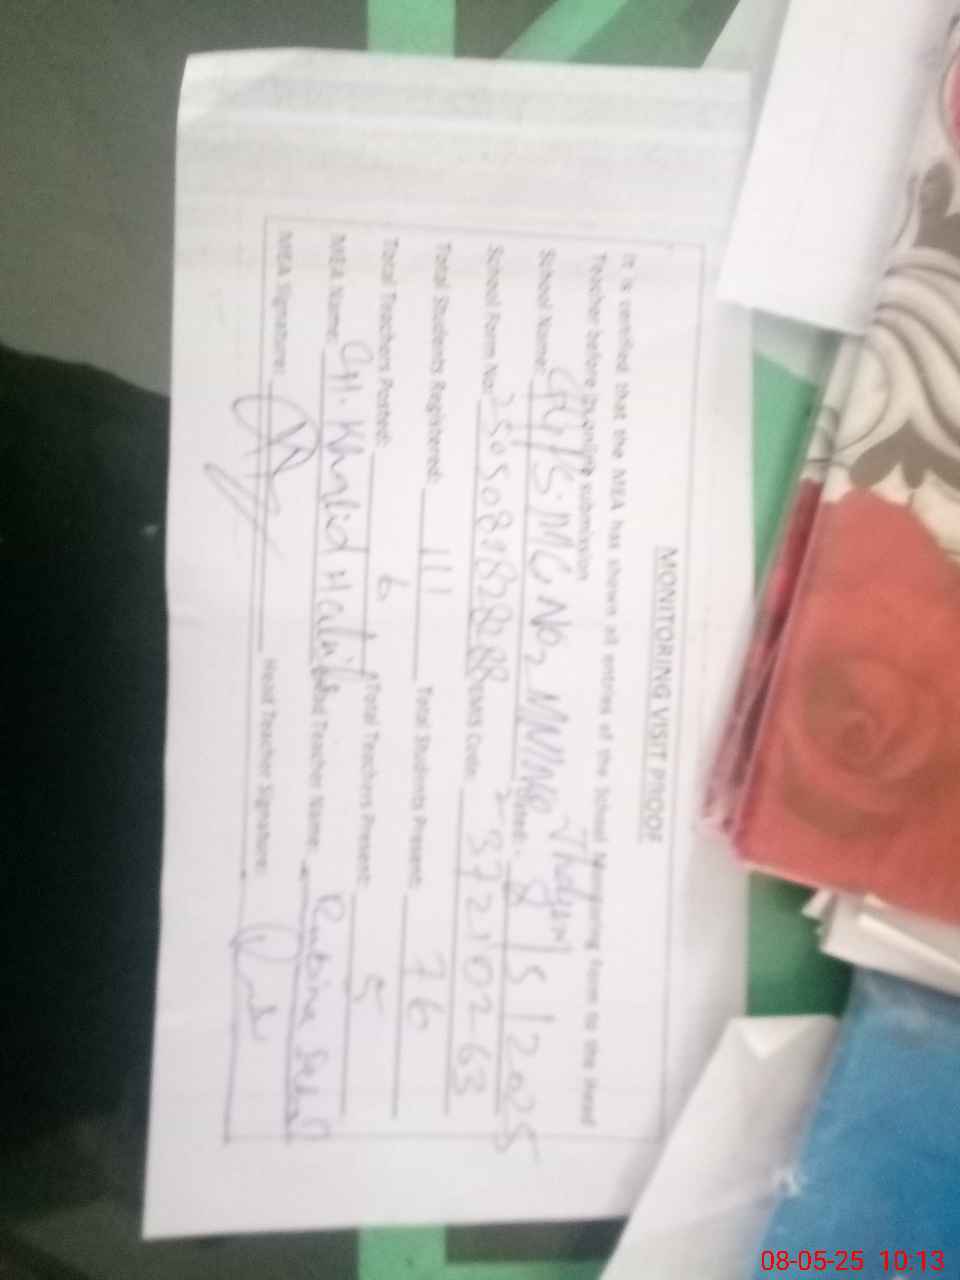 MONITORING VISIT PROOF
It is certified that the MEA has shown all entries of the School Monitoring Form to the Head
Teacher before its online submission
School Name: MC No 2 Date: 8/5/2025
School Form No: EMIS Code: 37210263
Total Students Registered: 111 Total Students Present: 76
Total Teachers Posted: 6 Total Teachers Present: 5
MEA Name: CH. Khalid Head Teacher Name: Rubina
MEA Signature: Head Teacher Signature:
08-05-25 10:13